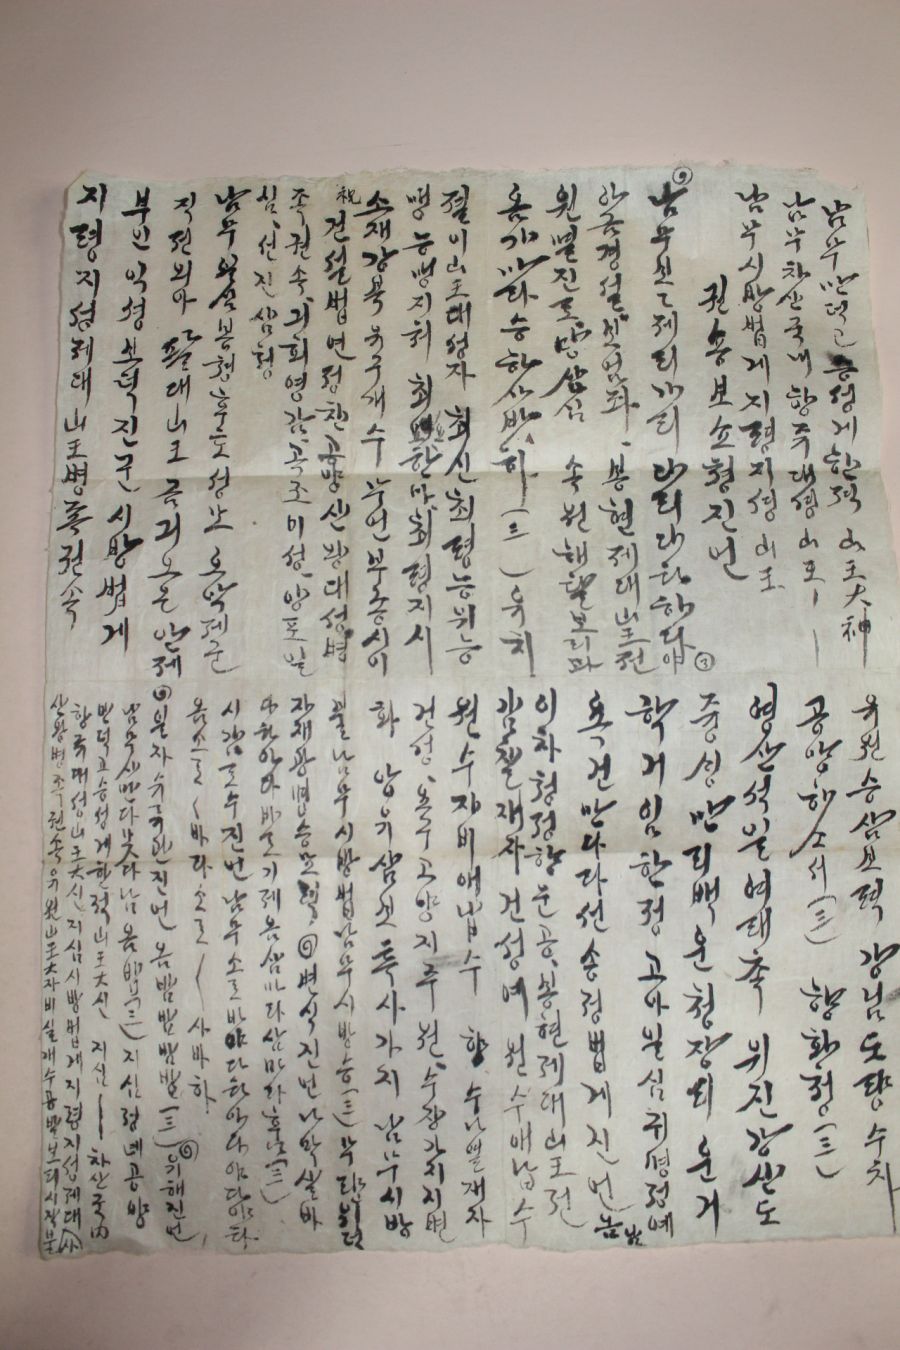 남무만덕고승셩게한젹 山王大神
남무차산국내항주대셩山王ㅣ
남무시방법게지령지셩山王
권용보쇼쳥진언
남무보보졔리가리다리다타아다야
아금경셜보엄좌 봉헌졔대山王젼
원멸진로망상심 속원해탈보리과
옴가마라승하사바하(三) 유치
졀이山王대셩자 최신최령능위능
맹능맹지쳐 최 한마최령지시
소재강복 유구개수 무언부종시이
祝건셜법연졍찬공양산왕대셩병
족권속 긔회영감 곡조미셩 앙표일
심 션진삼쳥
남무일심봉쳥후토셩모 오악졔군
직젼외아 팔대山王금긔오온안졔
부인익셩보덕진군 시방법게
지령지셩졔대山王병족권속
유원승삼보력 강님도량수차
공양하소서(三) 향화쳥(三)
영산석일여래촉 위진강산도
즁싱 만리백운쳥장리 운거
학거임한졍 고아일심귀명졍예
욕건만다라션송졍법게진언 옴남
이차쳥졍향운공 봉현졔대山王젼
감찰재자건셩예 원수애납수
원수자비애납수 향수나열재자
건셩 욕구고양지주원 수장가지지변
화 앙유삼보 특사가지 남무시방
불남무시방법남무시방승(三) 무량위덕
자재광명승묘력 변식진언나막살바
다타아다바로기졔옴삼마라삼마라훔(三)
시감로수진언남무소로바야다타아다야다냐타
옴소로ㅣ바라소로ㅣ사바하
일자수륜관진언 옴밤밤밤밤(三) 유해진언
남무사만다못다남 옴밤(三) 지심졍녜공양
만덕고승셩게한젹山王大신 지심ㅣ 차산국內
항주대셩山王大신지심시방법게지령지셩졔대
산왕병족권속유원山王大자비실개수공발보리시작불